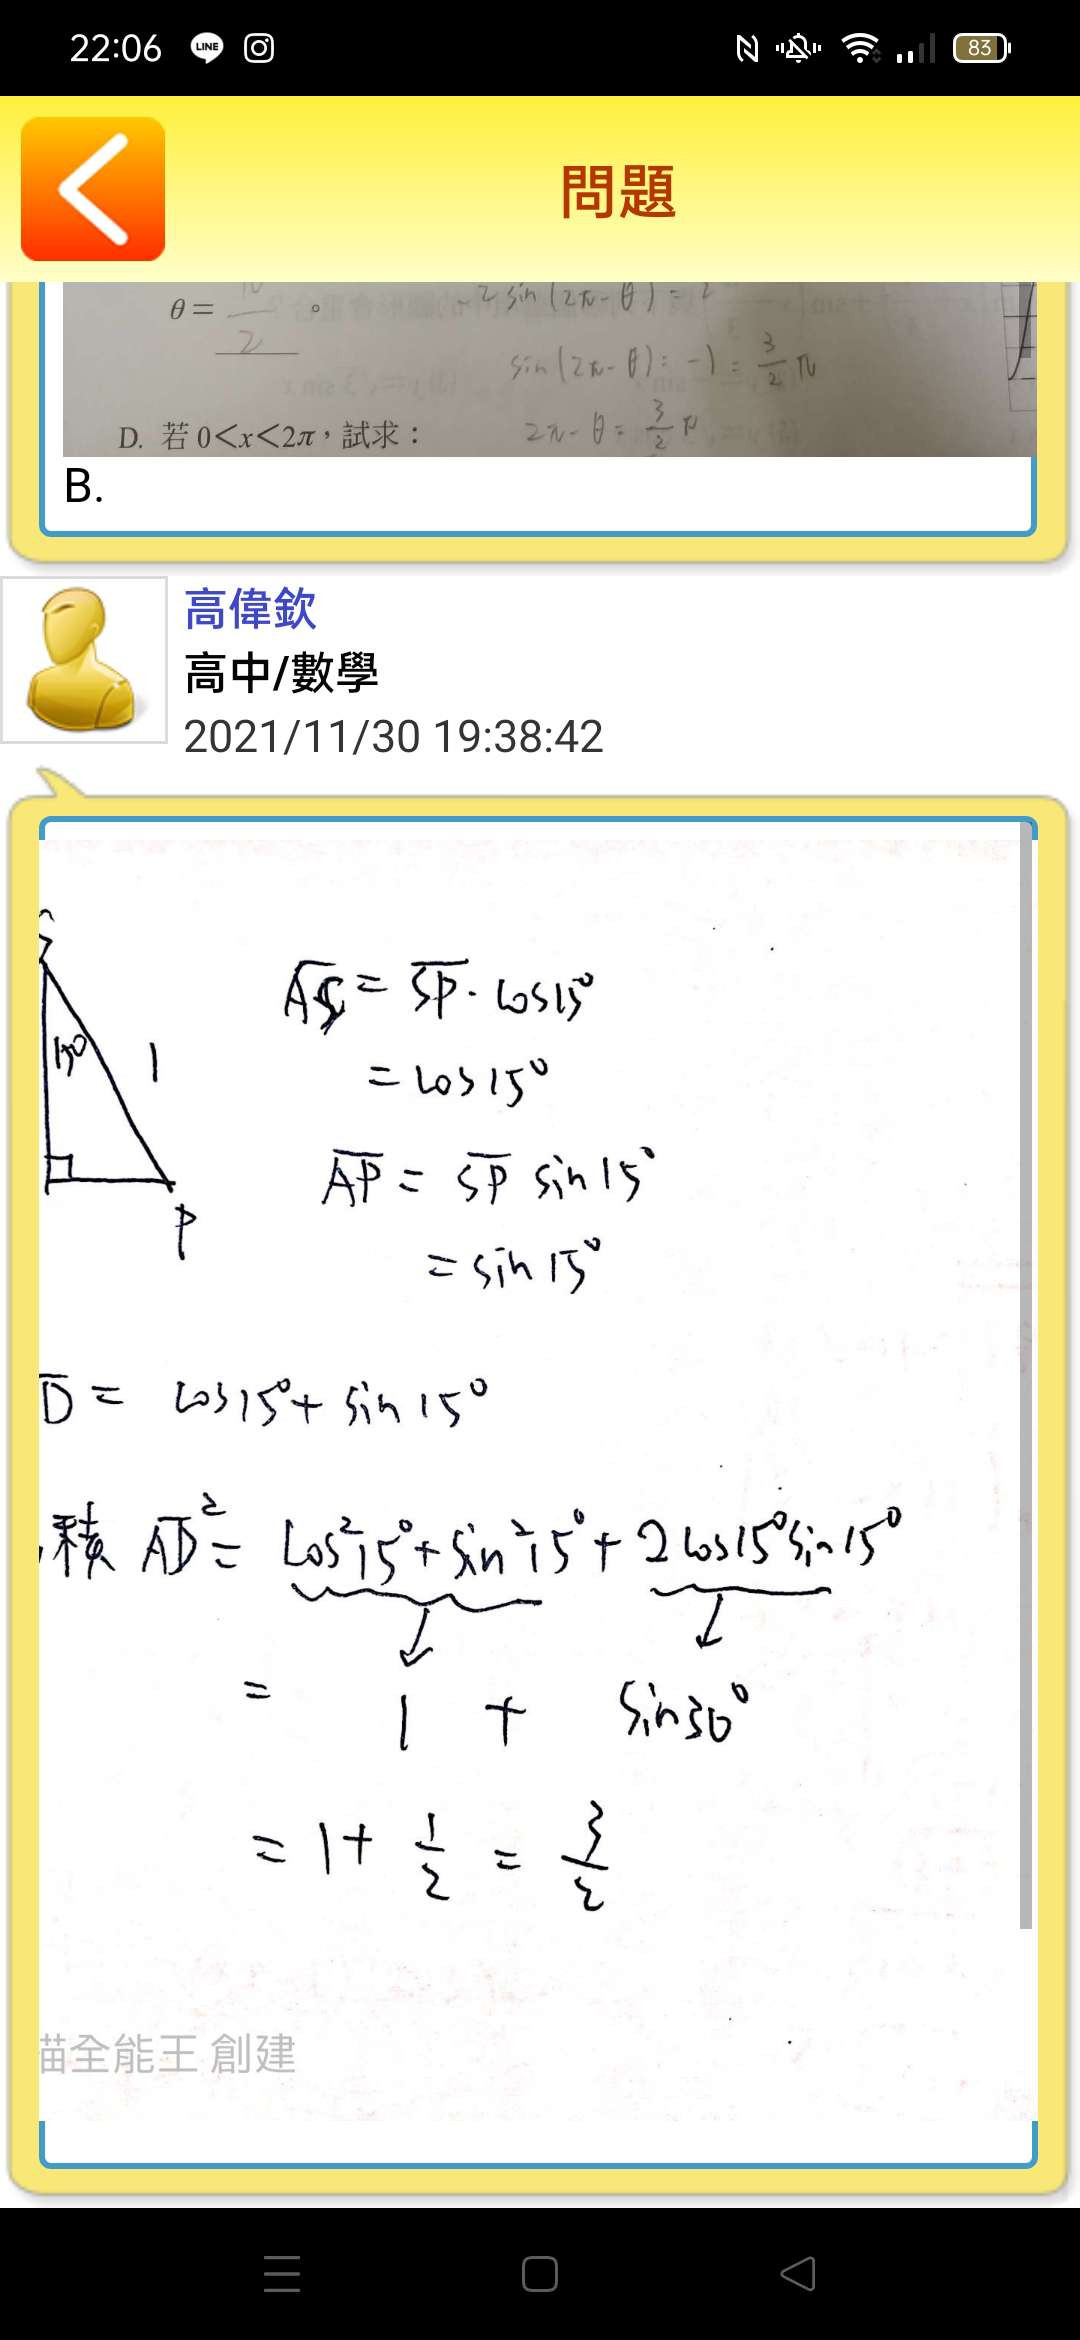 22:06 LINE 83
問題
θ=
2
。
sin(2π-θ)=-1=3/2π
D. 若0<x<2π，試求：
2π-θ=3/2π
B.
高偉欽
高中/數學
2021/11/30 19:38:42
15° 1
P
AS = SP · cos15°
= cos15°
AP = SP sin15°
= sin15°
D = cos15°+ sin15°
積 AD² = cos²15°+sin²15°+2cos15°sin15°
= 1 + sin30°
= 1+ 1/2 = 3/2
描全能王 創建